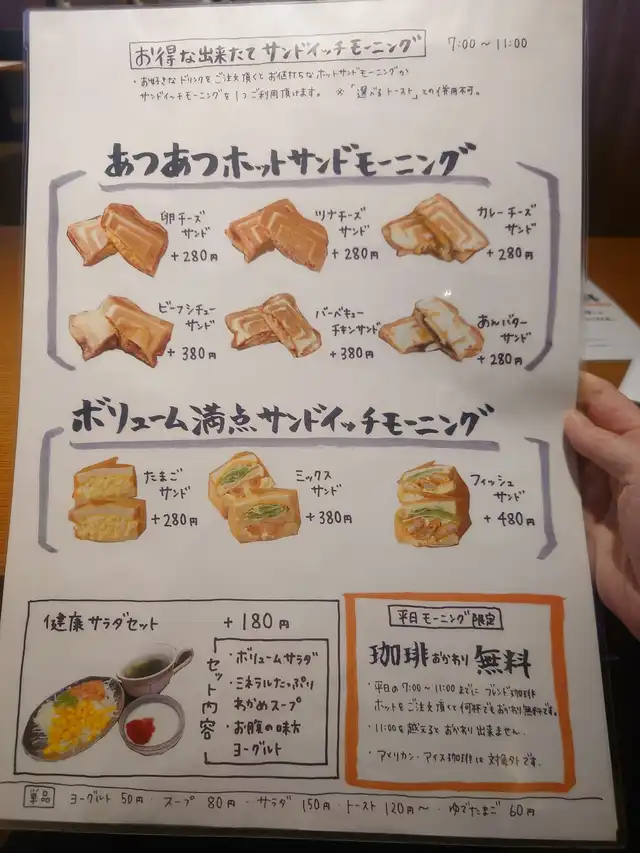 お得な出来たて サンドイッチモーニング 7:00～11:00
・お好きなドリンクをご注文頂くとお値打ちなホットサンドモーニングか
サンドイッチモーニングを1つご利用頂けます。 ※「選べるトースト」との併用不可。
あつあつホットサンドモーニング
卵チーズ
サンド
+280円
ツナチーズ
サンド
+280円
カレーチーズ
サンド
+280円
ビーフシチュー
サンド
+380円
バーベキュー
チキンサンド
+380円
あんバター
サンド
+280円
ボリューム満点サンドイッチモーニング
たまご
サンド
+280円
ミックス
サンド
+380円
フィッシュ
サンド
+480円
健康サラダセット +180円
セット内容
・ボリュームサラダ
・ミネラルたっぷり
わかめスープ
・お腹の味方
ヨーグルト
平日モーニング限定
珈琲おかわり無料
・平日の7:00～11:00までにブレンド珈琲
ホットをご注文頂くと何杯でもおかわり無料です。
・11:00を越えるとおかわり出来ません。
・アメリカン・アイス珈琲は対象外です。
単品 ヨーグルト 50円・スープ 80円・サラダ 150円・トースト 120円～・ゆでたまご 60円